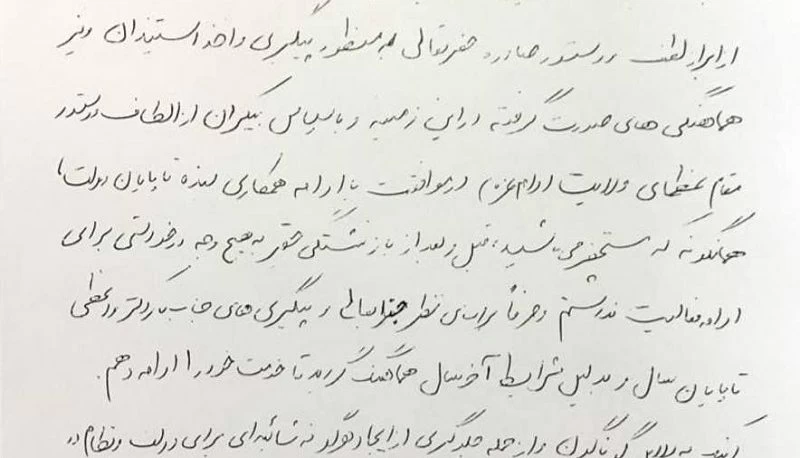 از ابراز لطف و دستور صادره حضرتعالی به منظور پیگیری و اخذ استیذان و نیز
هماهنگی های صورت گرفته در این زمینه و با سپاس بیکران از الطاف و دستور
مقام عظمای ولایت (دام عزه) در موافقت با ادامه همکاری بنده تا پایان دولت،
همانگونه که مستحضر می باشید، قبل و بعد از بازنشستگی حقیر به هیچ وجه درخواستی برای
ادامه فعالیت نداشتم و صرفاً براساس نظر جنابعالی و پیگیری های جناب آقای دکتر واعظی
تا پایان سال و بدلیل شرایط آخر سال هماهنگ گردید تا خدمت خود را ادامه دهم.
به دلایل گوناگون و از جمله جلوگیری از ایجاد هرگونه شائبه ای برای دولت و نظام در